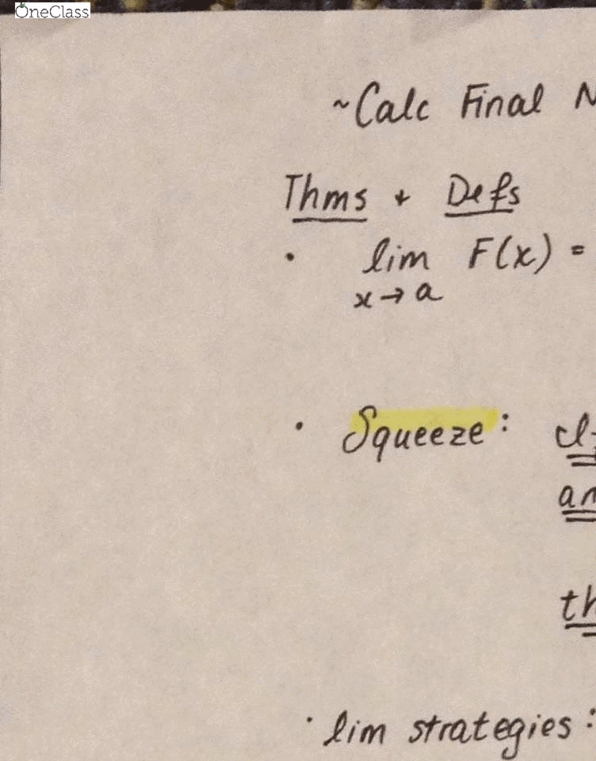 OneClass
~Calc Final N
Thms + Defs
• lim F(x) =
x→a
• Squeeze:
an
th
• lim strategies: